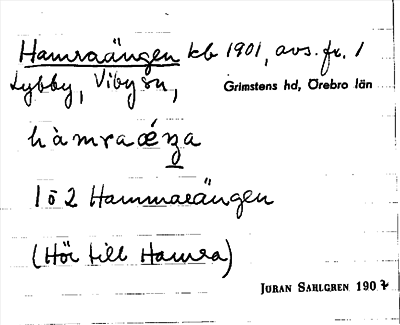 Hamraängen kb 1901, avs. fr. 1
Lybby, Viby sn,
Grimstens hd, Örebro län
hàmraǽŋa
1 o 2 Hammaraängen
(Hör till Hamra)
JÖRAN SAHLGREN 1907